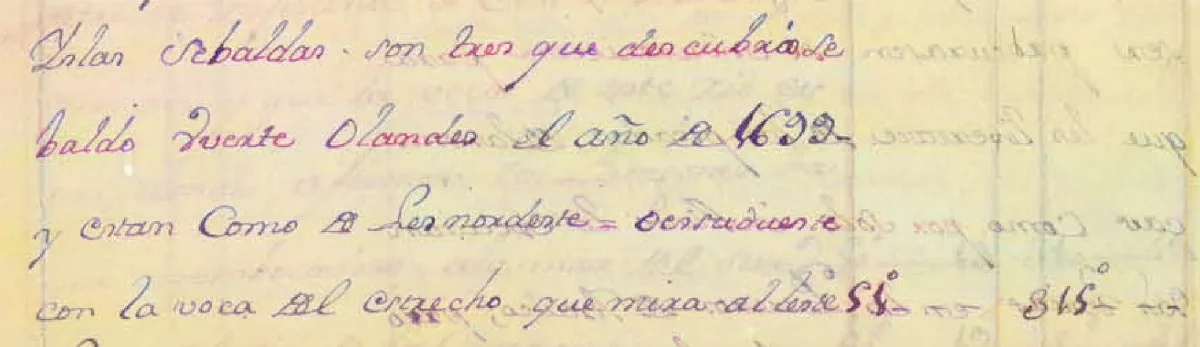 Yslas sebaldas. son tres que descubrio se
baldo vuerte Olandes el año de 1699
y estan Como de Lesnordeste = oessudueste
con la voca del estrecho que mira al leste 51° 315°